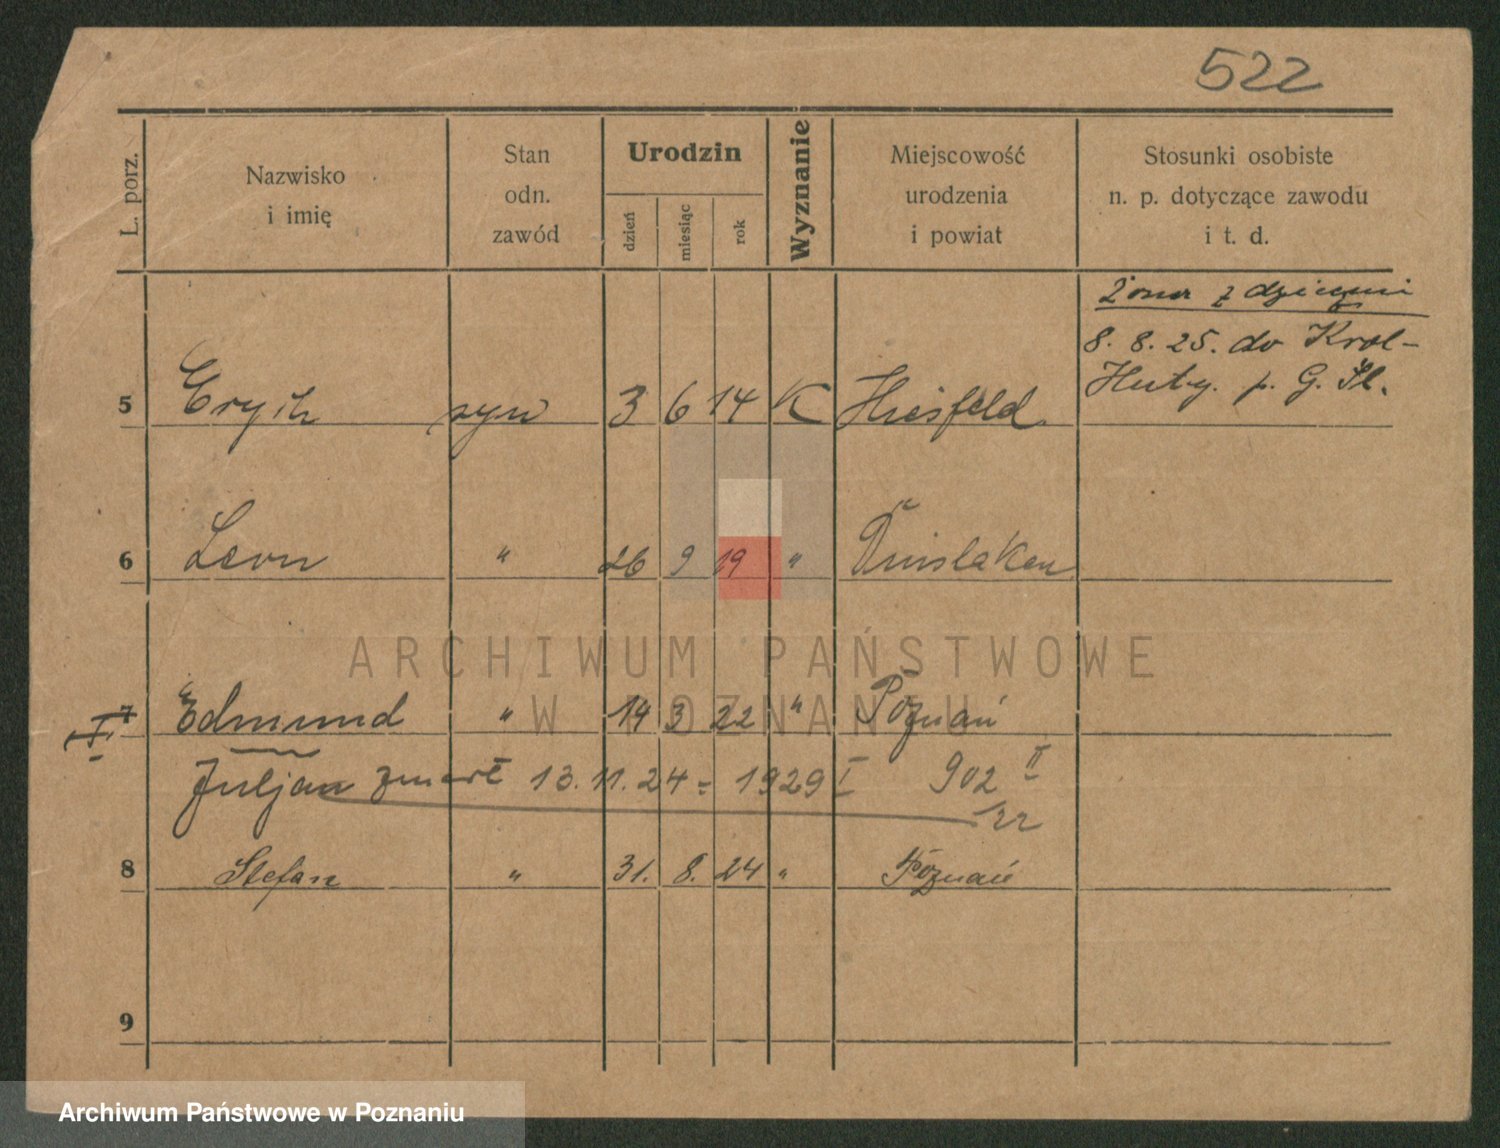 522
L. porz.
Nazwisko
i imię
Stan
odn.
zawód
Urodzin
dzień
miesiąc
rok
Wyznanie
Miejscowość
urodzenia
i powiat
Stosunki osobiste
n. p. dotyczące zawodu
i t. d.
Żona z dziećmi
8. 8. 25. do Krol-
Huty. p. G. Śl.
5 Erych syn 3 6 14 K Hiesfeld
6 Leon " 26 9 19 " Dinslaken
7 Edmund " 14 3 22 " Poznań
I
Juljan zmarł 13.11.24 = 1929 I 902 II
22
8 Stefan " 31. 8. 24 " Poznań
9
ARCHIWUM PAŃSTWOWE
W POZNANIU
Archiwum Państwowe w Poznaniu